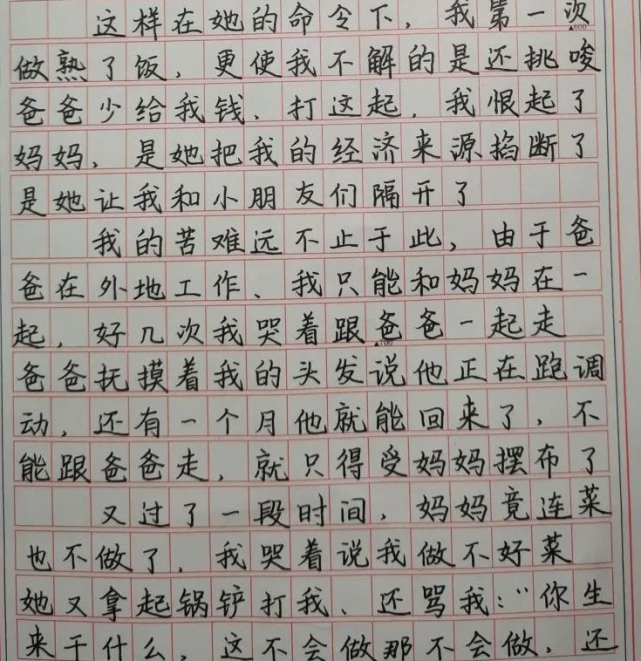 这样在她的命令下，我第一次
做熟了饭，更使我不解的是还挑唆
爸爸少给我钱、打这起，我恨起了
妈妈，是她把我的经济来源掐断了
是她让我和小朋友们隔开了
我的苦难远不止于此，由于爸
爸在外地工作、我只能和妈妈在一
起，好几次我哭着跟爸爸一起走
爸爸抚摸着我的头发说他正在跑调
动，还有一个月他就能回来了，不
能跟爸爸走，就只得受妈妈摆布了
又过了一段时间，妈妈竟连菜
也不做了，我哭着说我做不好菜
她又拿起锅铲打我、还骂我：“你生
来干什么，这不会做那不会做，还